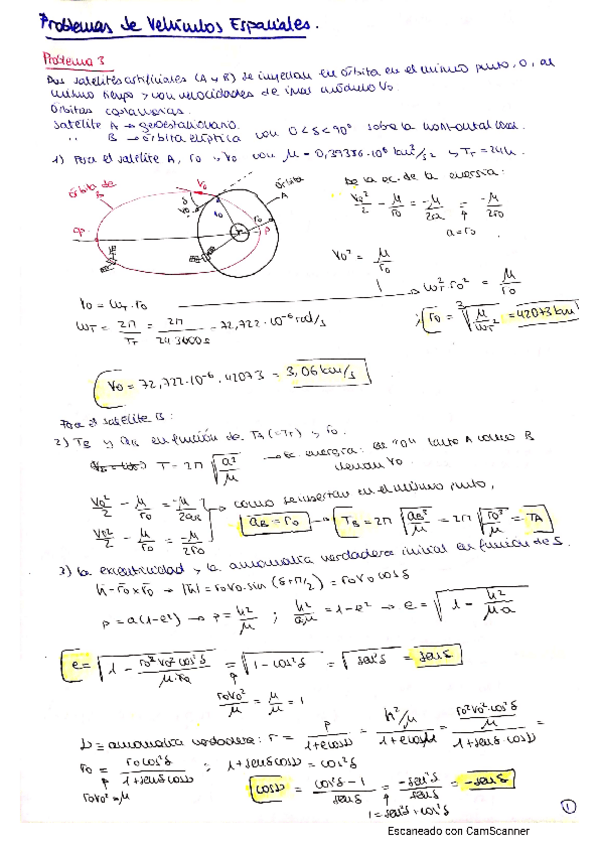 Problemas de Vehículos Espaciales.
Problema 3
Dos satélites artificiales (A y B) se inyectan en órbita en el mismo punto, O, al
mismo tiempo y con velocidades de igual módulo V0
Órbitas coplanarias.
Satélite A → geoestacionario.
" B → órbita elíptica con 0<δ<90° sobre la horizontal local.
1) Para el satélite A, r0 y V0 con μ = 0,39386·10⁶ km³/s² y TT = 24h.
órbita de B
V0
órbita A
De la ec. de la energía:
V0²/2 - μ/r0 = -μ/2a = -μ/2r0
a=r0
V0² = μ/r0
V0 = ωT·r0 → ωT²·r0² = μ/r0
ωT = 2π/TT = 2π/24·3600s = 72,722·10⁻⁶ rad/s ; r0 = ∛(μ/ωT²) = 42073 km
V0 = 72,722·10⁻⁶·42073 = 3,06 km/s
Para el satélite B:
2) TB y aB en función de TA(=TT) y r0.
T = 2π √(a³/μ) → ec. energía: en "O" tanto A como B
tienen V0
V0²/2 - μ/r0 = -μ/2aB
V0²/2 - μ/r0 = -μ/2r0
→ como se insertan en el mismo punto,
aB = r0 → TB = 2π √(aB³/μ) = 2π √(r0³/μ) = TA
3) La excentricidad y la anomalía verdadera inicial en función de δ.
h = r0 x V0 → |h| = r0V0·sin(δ+π/2) = r0V0cosδ
p = a(1-e²) → p = h²/μ ; h²/aμ = 1-e² → e = √(1 - h²/μa)
e = √(1 - r0²V0²cos²δ/μ·r0) = √(1-cos²δ) = √(sen²δ) = senδ
r0V0²/μ = μ/μ = 1
ν ≡ anomalía verdadera: r = p/(1+ecosν) = (h²/μ)/(1+ecosν) = (r0²V0²·cos²δ/μ)/(1+senδ cosν) =
r0 = r0cos²δ/(1+senδcosν) ; 1+senδcosν = cos²δ
r0V0²=μ
cosν = (cos²δ-1)/senδ = -sen²δ/senδ = -senδ
1=sen²δ+cos²δ
1
Escaneado con CamScanner